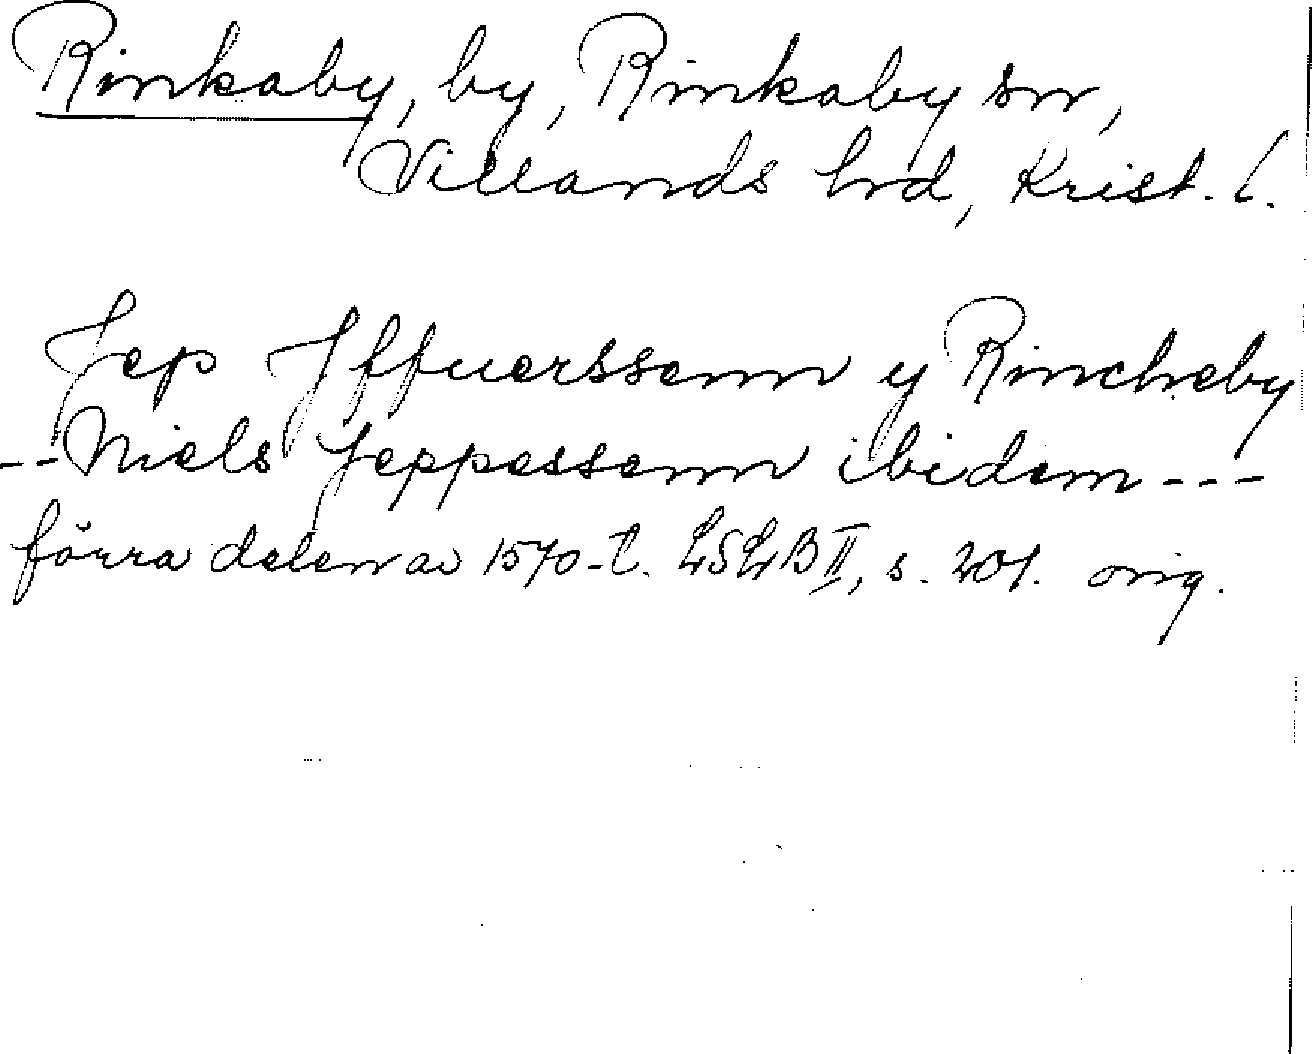 Rinkaby, by, Rinkaby sn,
Villands hrd, Krist. l.
Jep Jffuerssenn y Rincheby
-- Niels Jeppessenn ibidem ---
förra delen av 1570-t. LSLB II, s. 201. orig.